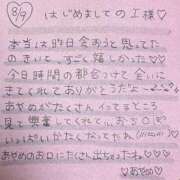 8/9
はじめましてのI様♡
本当は昨日会おうと思ってた
のきいて、すごく嬉しかった♡
今日時間の都合つけて会いに
きてくれてありがとうだよ〜
あやめがたくさんイってるところ
見て興奮してくれて
いっぱいかたくなってたね♡
あやめのお口にたくさん出ちゃったね♡
♡あやめ♡